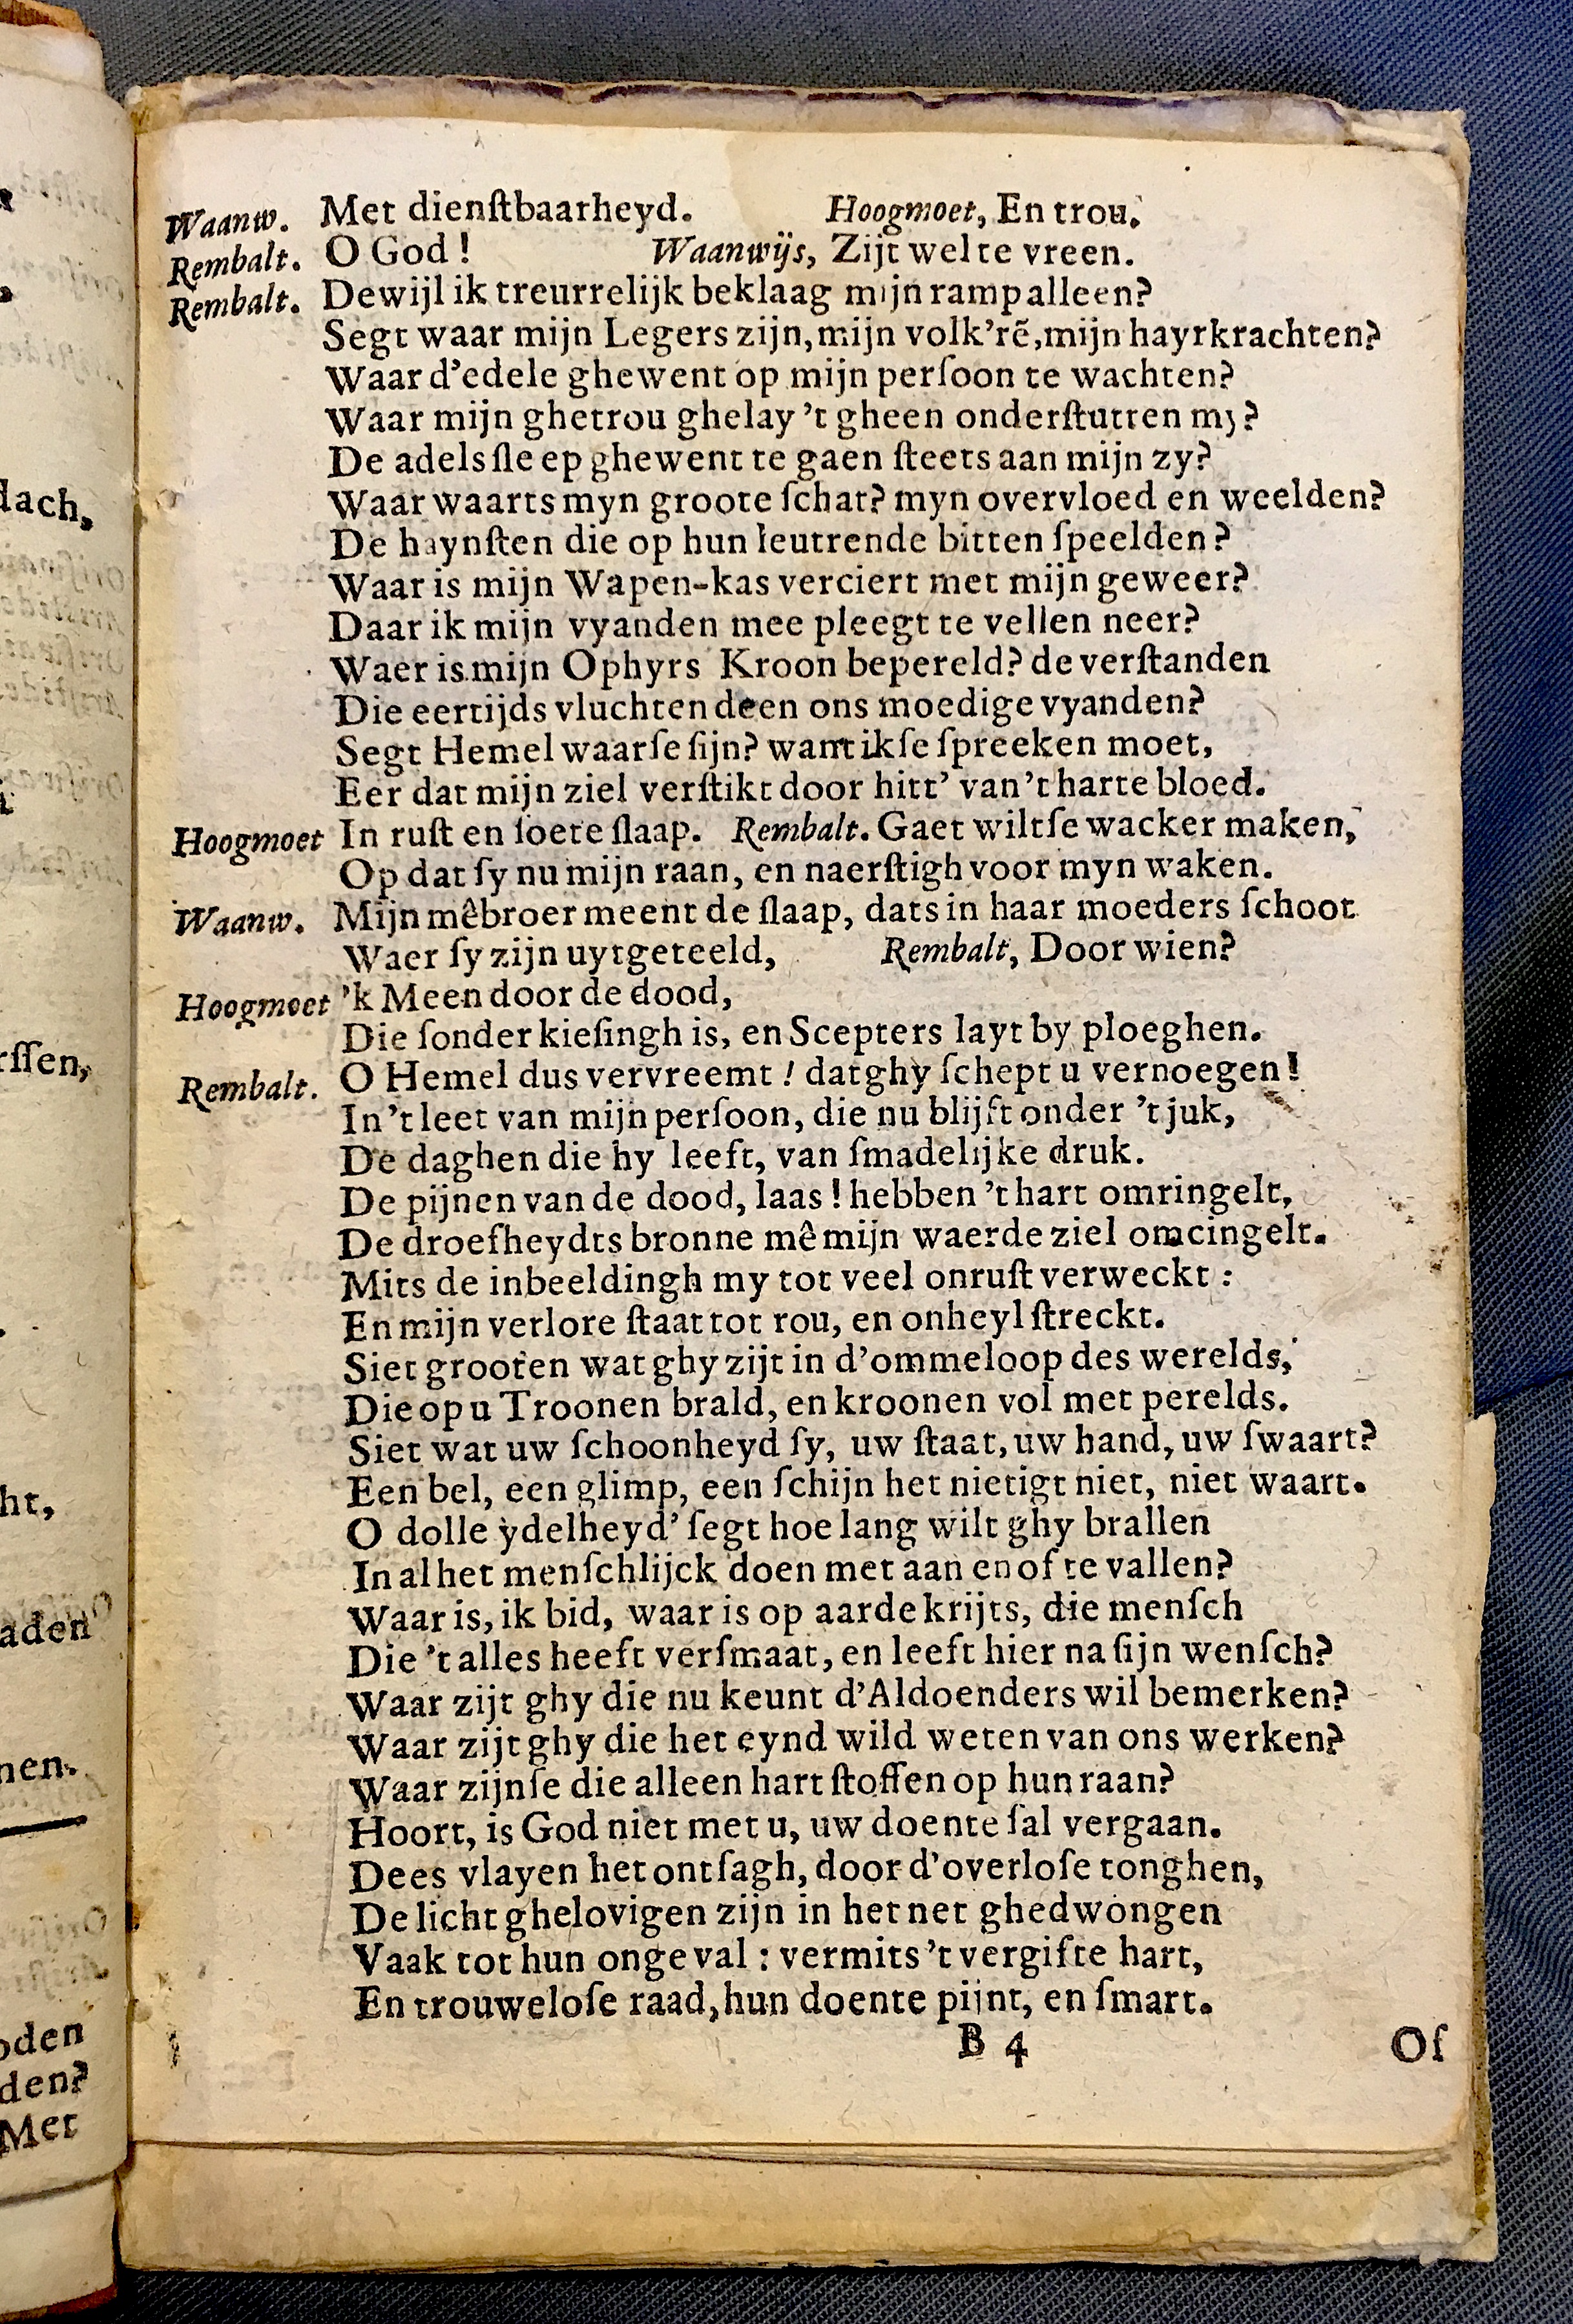 Waanw. Met dienſtbaarheyd. Hoogmoet, En trou.
Rembalt. O God! Waanwijs, Zijt wel te vreen.
Rembalt. Dewijl ik treurrelijk beklaag mijn ramp alleen?
Segt waar mijn Legers zijn, mijn volk'rē, mijn hayrkrachten?
Waar d'edele ghewent op mijn perſoon te wachten?
Waar mijn ghetrou ghelay 't gheen onderſtutten my?
De adels ſleep ghewent te gaen ſteets aan mijn zy?
Waar waarts myn groote ſchat? myn overvloed en weelden?
De haynſten die op hun leutrende bitten ſpeelden?
Waar is mijn Wapen-kas verciert met mijn geweer?
Daar ik mijn vyanden mee pleegt te vellen neer?
Waer is mijn Ophyrs Kroon bepereld? de verſtanden
Die eertijds vluchten deen ons moedige vyanden?
Segt Hemel waar ſe ſijn? want ik ſe ſpreeken moet,
Eer dat mijn ziel verſtikt door hitt' van 't harte bloed.
Hoogmoet In ruſt en ſoete ſlaap. Rembalt. Gaet wilt ſe wacker maken,
Op dat ſy nu mijn raan, en naerſtigh voor myn waken.
Waanw. Mijn mêbroer meent de ſlaap, dats in haar moeders ſchoot
Waer ſy zijn uytgeteeld, Rembalt, Door wien?
Hoogmoet 'k Meen door de dood,
Die ſonder kieſingh is, en Scepters layt by ploeghen.
Rembalt. O Hemel dus vervreemt! dat ghy ſchept u vernoegen!
In 't leet van mijn perſoon, die nu blijft onder 't juk,
De daghen die hy leeft, van ſmadelijke druk.
De pijnen van de dood, laas! hebben 't hart omringelt,
De droefheydts bronne mê mijn waerde ziel omcingelt.
Mits de inbeeldingh my tot veel onruſt verweckt:
En mijn verlore ſtaat tot rou, en onheyl ſtreckt.
Siet grooten wat ghy zijt in d'ommeloop des werelds,
Die op u Troonen brald, en kroonen vol met perelds.
Siet wat uw ſchoonheyd ſy, uw ſtaat, uw hand, uw ſwaart?
Een bel, een glimp, een ſchijn het nietigt niet, niet waart.
O dolle ydelheyd' ſegt hoe lang wilt ghy brallen
In al het menſchlijck doen met aan en of te vallen?
Waar is, ik bid, waar is op aarde krijts, die menſch
Die 't alles heeft verſmaat, en leeft hier na ſijn wenſch?
Waar zijt ghy die nu keunt d'Aldoenders wil bemerken?
Waar zijt ghy die het eynd wild weten van ons werken?
Waar zijnſe die alleen hart ſtoffen op hun raan?
Hoort, is God niet met u, uw doente ſal vergaan.
Dees vlayen het ontſagh, door d'overloſe tonghen,
De licht ghelovigen zijn in het net ghedwongen
Vaak tot hun ongeval: vermits 't vergifte hart,
En trouweloſe raad, hun doente pijnt, en ſmart.
B 4 Of
dach,
rſſen,
ht,
aden
nen.
oden
den?
Met